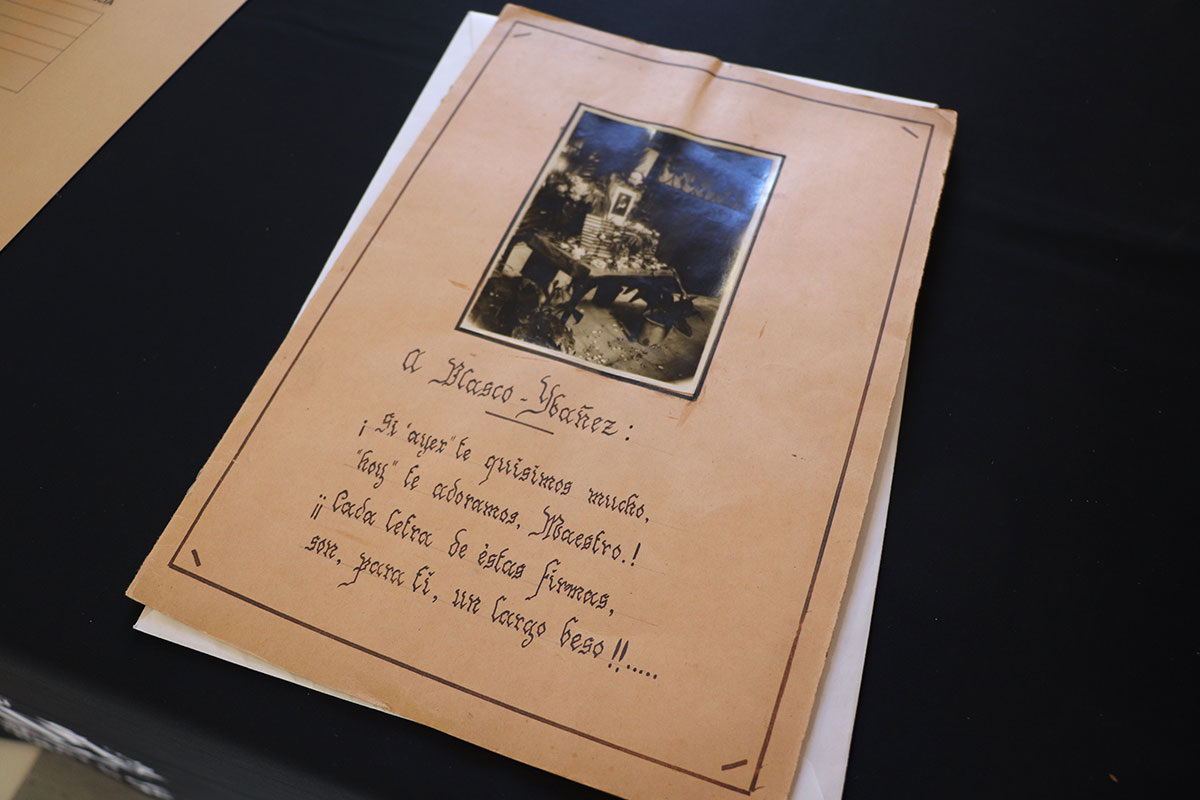 A Blasco-Ybañez:
¡Si "ayer" te quisimos mucho,
"hoy" te adoramos, Maestro.!
¡¡Cada letra de éstas firmas,
son, para ti, un largo beso!!.....